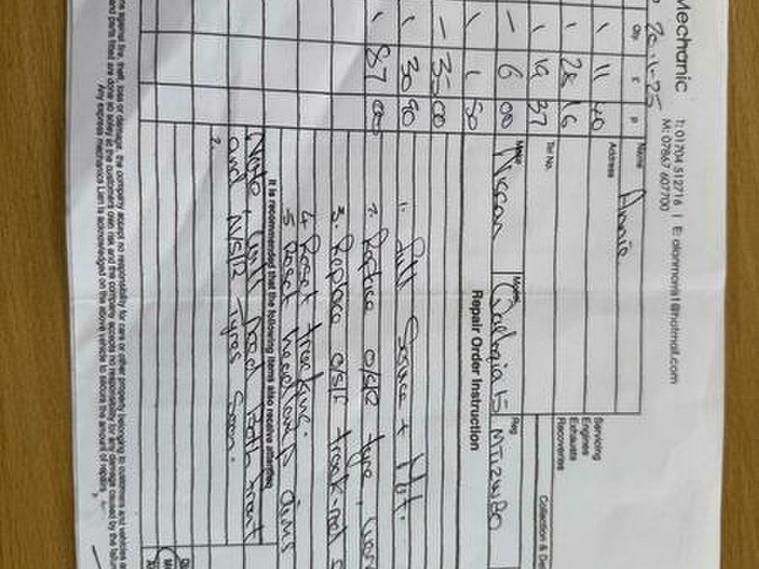 Mechanic
T: 01704 512716 | E: alanmorris1@hotmail.com
M: 07867 607700
20-11-25
Name Annie
Address
Tel No.
Servicing
Engines
Exhausts
Recoveries
Collection & De
Make Nissan
Model
Reg
Qty. £ p
1 11 40
1 28 16
1 19 37
- 6 00
1 1 50
- 35 00
1 30 90
1 87 00
Repair Order Instruction
1. Full Service + Mot.
2. Replace O/S/R tyre,
3. Replace O/S/F track-rod
4. Reset tracking.
5 Reset headlamp aims
It is recommended that the following items also receive attention
Note, Will need both front
and N/S/R Tyres Soon.
?
me against fire, theft, loss or damage, the company accept no responsibility for cars or other property belonging to customers and vehicles a
and parts fitted are done so solely at the customers own risk and the company accepts no responsibility for any damage caused by the failur
Any express mechanics Lien is acknowledged on the above vehicle to secure the amount of repairs